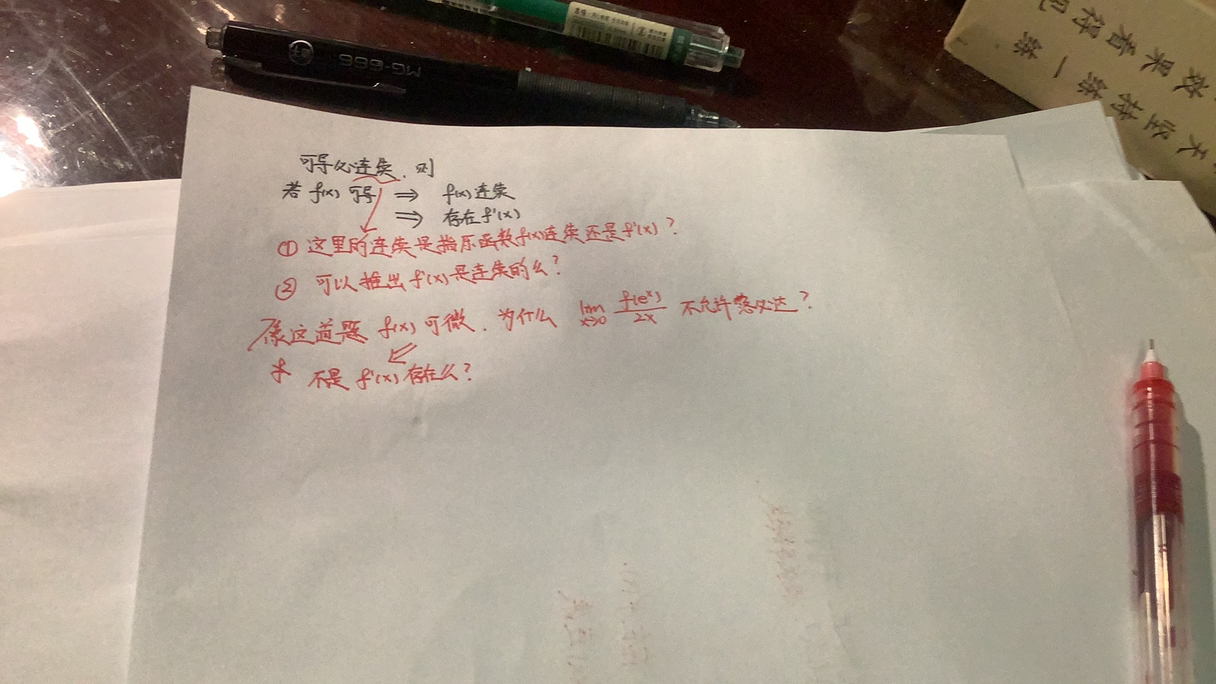 MG-666
效果看得见
天坚持练一练
可导必连续，则
若 f(x) 可导 ⇒ f(x)连续
⇒ 存在f'(x)
① 这里的连续是指原函数f(x)连续还是f'(x)？
② 可以推出 f'(x)是连续的么？
像这道题 f(x) 可微，为什么 lim x→0 f(e^x)/2x 不允许洛必达？
不是 f'(x)存在么？